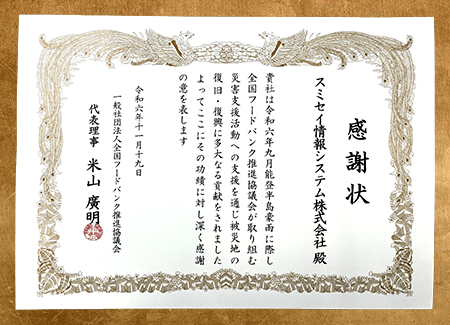 感謝状
スミセイ情報システム株式会社 殿
貴社は令和六年九月能登半島豪雨に際し
全国フードバンク推進協議会が取り組む
災害支援活動への支援を通じ被災地の
復旧・復興に多大なる貢献をされました
よってここにその功績に対し深く感謝
の意を表します
令和六年十一月十九日
一般社団法人全国フードバンク推進協議会
代表理事 米山 廣明